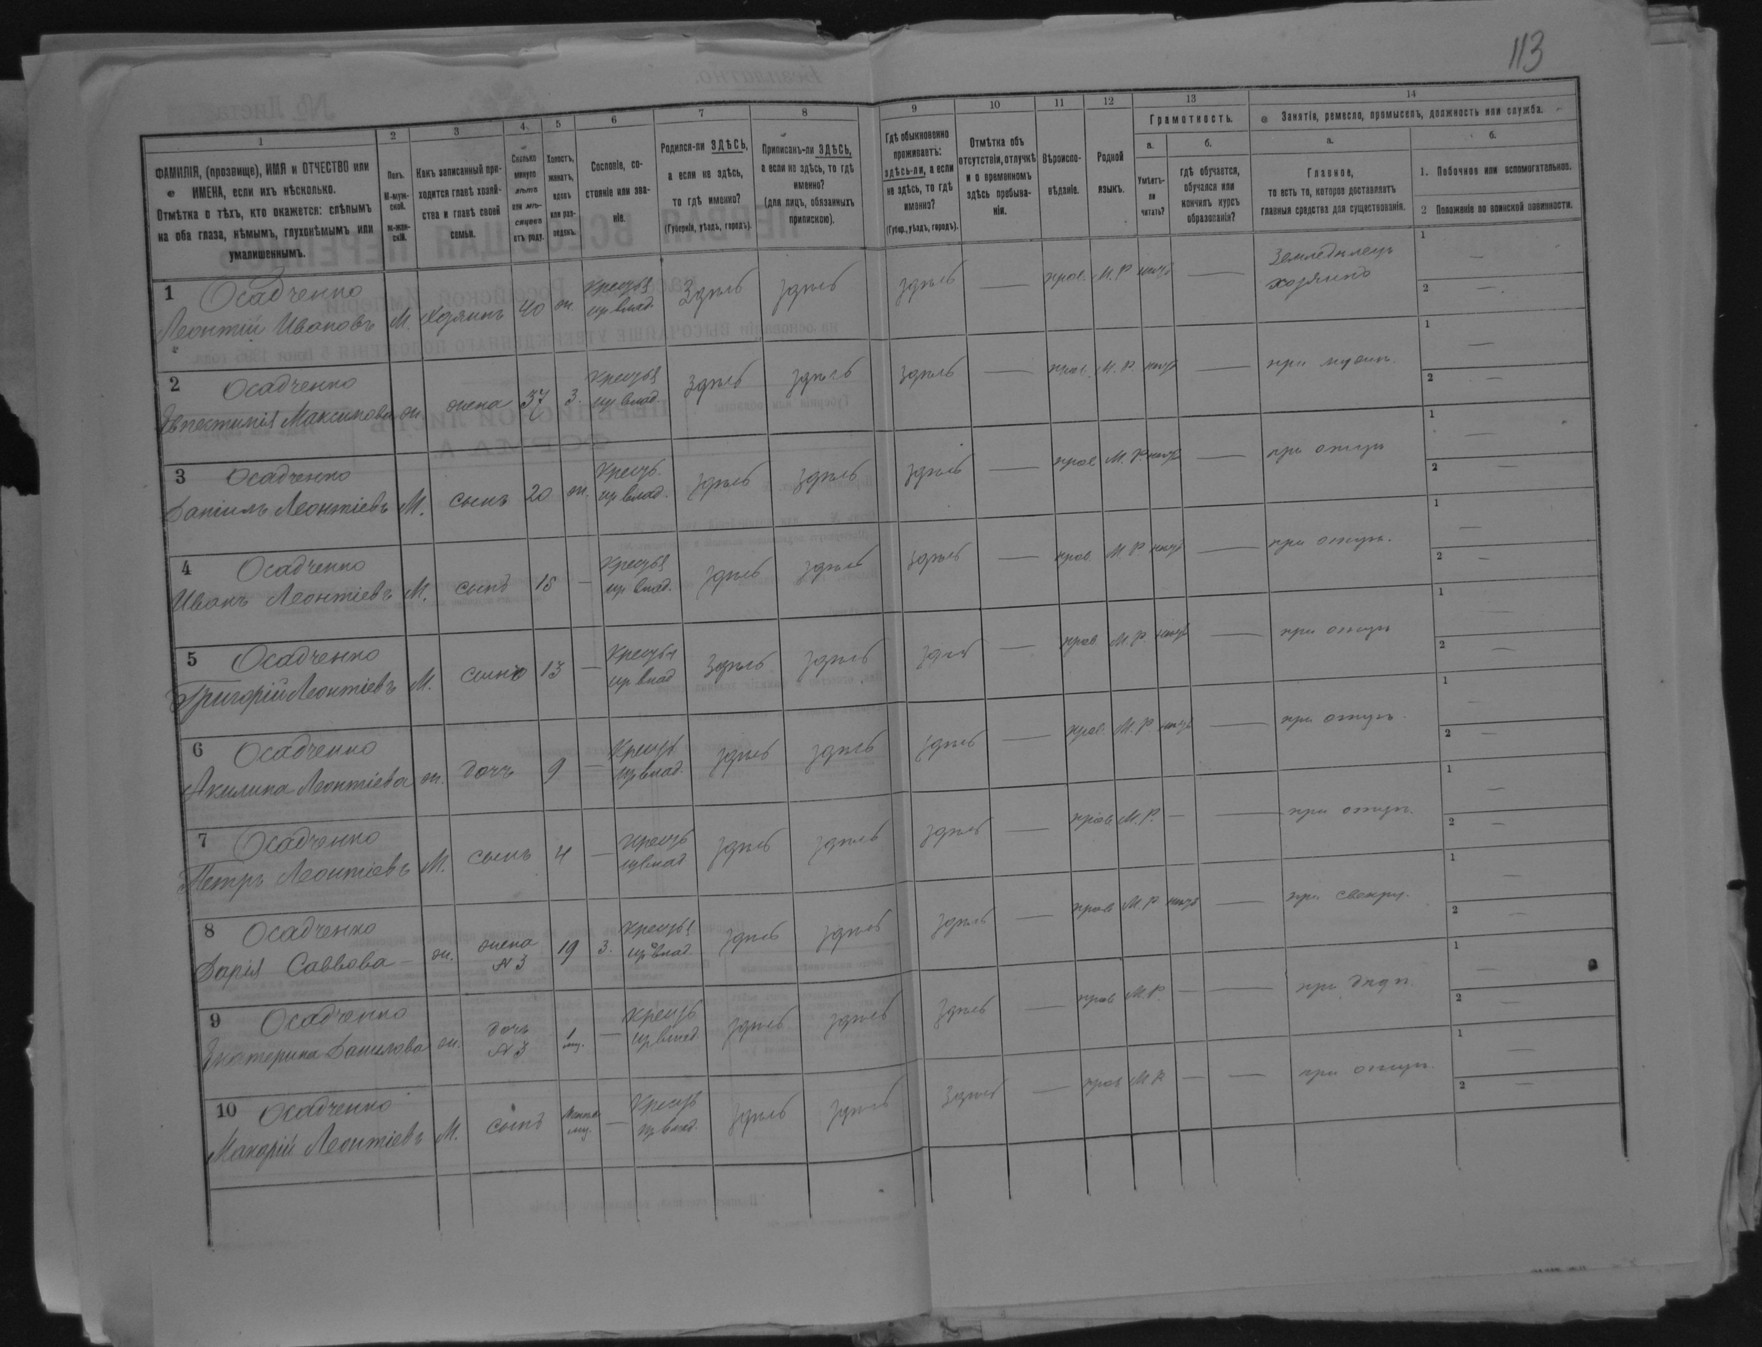 113
1
2
3
4.
5
6
7
8
9
10
11
12
13
14
ФАМИЛІЯ, (прозвище), ИМЯ и ОТЧЕСТВО или
ИМЕНА, если ихъ нѣсколько.
Отмѣтка о тѣхъ, кто окажется: слѣпымъ
на оба глаза, нѣмымъ, глухонѣмымъ или
умалишеннымъ.
Полъ.
М-муж-
ской.
ж-жен-
скій.
Какъ записанный при-
ходится главѣ хозяй-
ства и главѣ своей
семьи.
Сколько
минуло
лѣтъ
или мѣ-
сяцевъ
отъ роду.
Холостъ,
женатъ,
вдовъ
или раз-
веденъ.
Сословіе, со-
стояніе или зва-
ніе.
Родился-ли ЗДѢСЬ,
а если не здѣсь,
то гдѣ именно?
(Губернія, уѣздъ, городъ).
Приписанъ-ли ЗДѢСЬ,
а если не здѣсь, то гдѣ
именно?
(для лицъ, обязанныхъ
припискою).
Гдѣ обыкновенно
проживаетъ:
здѣсь-ли, а если
не здѣсь, то гдѣ
именно?
(Губер., уѣздъ, городъ).
Отмѣтка объ
отсутствіи, отлучкѣ
и о временномъ
здѣсь пребыва-
ніи.
Вѣроиспо-
вѣданіе.
Родной
языкъ.
Грамотность.
а.
Умѣетъ-
ли
читать?
б.
гдѣ обучается,
обучался или
кончилъ курсъ
образованія?
Занятіе, ремесло, промыселъ, должность или служба.
а.
Главное,
то есть то, которое доставляетъ
главныя средства для существованія.
б.
1. Побочное или вспомогательное.
2 Положеніе по воинской повинности.
1 Осадченко
Леонтій Ивановъ М. хозяинъ 40 ж. Крестья изъ влад. здѣсь здѣсь здѣсь — прав. М. Р. — Земледѣлецъ
хозяинъ
1 —
2 —
2 Осадченко
Максимова ж. жена 37 з. Крестья изъ влад. здѣсь здѣсь здѣсь — прав. М. Р. — при
1 —
2 —
3 Осадченко
Даніилъ Леонтіевъ М. сынъ 20 ж. Крестья изъ влад. здѣсь здѣсь здѣсь — прав М. Р. — при отцѣ
1 —
2 —
4 Осадченко
Иванъ Леонтіевъ М. сынъ — Крестья изъ влад. здѣсь здѣсь здѣсь — прав М. Р. — при отцѣ.
1 —
2 —
5 Осадченко
Григорій Леонтіевъ М. сынъ 13 — Крестья изъ влад здѣсь здѣсь здѣсь — прав М. Р. — при отцѣ
1 —
2 —
6 Осадченко
Акилина Леонтіева ж. дочь 9 — Крестья изъ влад. здѣсь здѣсь здѣсь — прав. М. Р. — при отцѣ.
1 —
2 —
7 Осадченко
Петръ Леонтіевъ М. сынъ 4 — Крестья изъ влад здѣсь здѣсь здѣсь — прав М. Р. — — при отцѣ.
1 —
2 —
8 Осадченко
Дарія Саввова — ж. жена №3 19 з. Крестья изъ влад. здѣсь здѣсь здѣсь — прав М. Р. — при свекрѣ.
1 —
2 —
9 Осадченко
Екатерина Данилова ж. дочь №3 1 мц. — Крестья изъ влад здѣсь здѣсь здѣсь — прав М. Р. — — при дѣдѣ.
1 —
2 —
10 Осадченко
Макарій Леонтіевъ М. сынъ мц. — Крестья изъ влад. здѣсь здѣсь здѣсь — прав М. Р. — — при отцѣ.
1 —
2 —